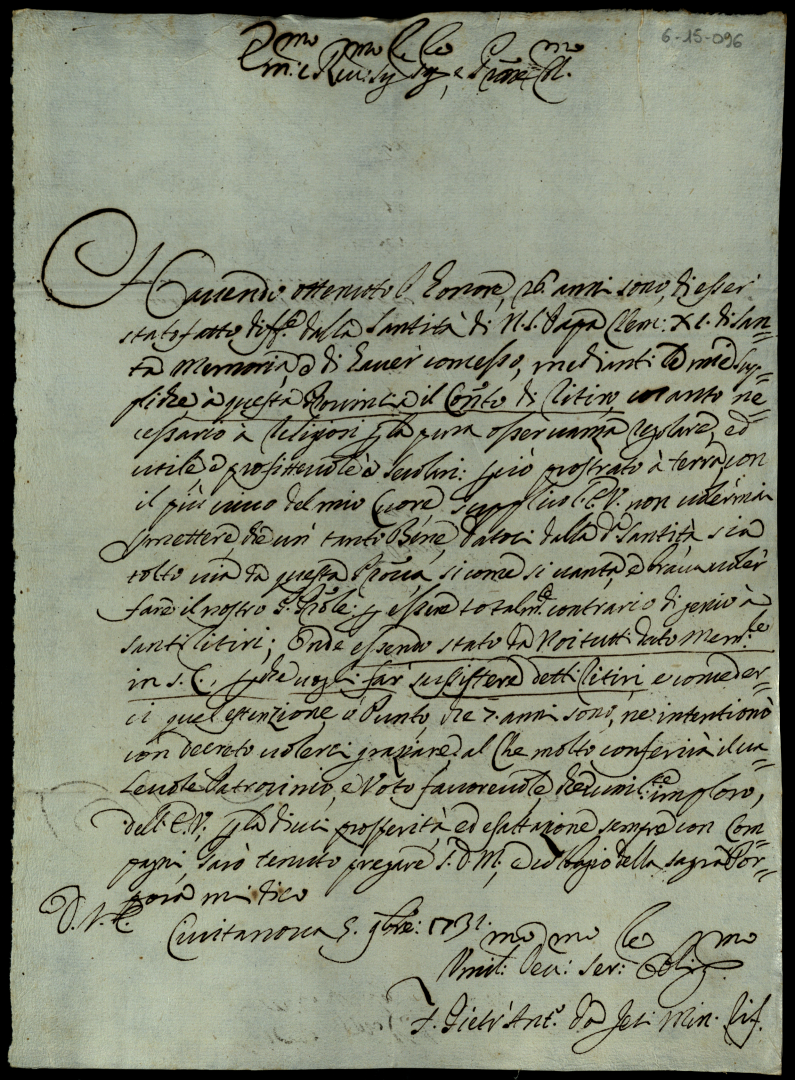 6-15-096
Em:mo e Rev:mo Sig:le Sig:le, e Prone Col:mo
Havendo ottenutto l'honore, 26 anni sono, di esser
stato fatto diff.e dalla Santità di N.S. Papa Clem: XI. di San=
ta Memoria, e di haver comesso, medianti le mie Sup=
pliche à questa Provincia il Con.to di Ritiro, cotanto ne=
cessario à Religiosi p la pura osservanza regolare, ed
utile, e profittevole à Secolari: p ciò prostrato à terra, con
il più vivo del mio Cuore, supplico l'E.V. non voler mai
permettere, che un tanto Bene, datoci dalla d.a Santità sia
tolto via da questa Pro.cia, si come si vanta, e brava voler
fare il nostro P. P.le: p essere total.te contrario di genio à
santi ritiri; Onde essendo stato da Noi tutti dato Mem:le
in S.C., p che vogli far sussistere detti Ritiri e conceder=
ci quel estenzione, ò Punto, che 7. anni sono, ne intentionò
con decreto volerci graziare, al che molto conferirà il va=
levole Patrocinio, e Voto favorevole, che umil:te imploro,
dell'E.V., p la di cui prosperità, ed esaltazione sempre con Com=
pagni, sarò tenuto pregare S.D.M., ed col bagio della sagra Por=
pora mi dico
D.V.E.
Civitanova 5. 9bre: 1731.
Umil:mo Dev:mo Ser:le Oblig:mo
F. Pietr'Ant.o da Jesi Min. Rif.